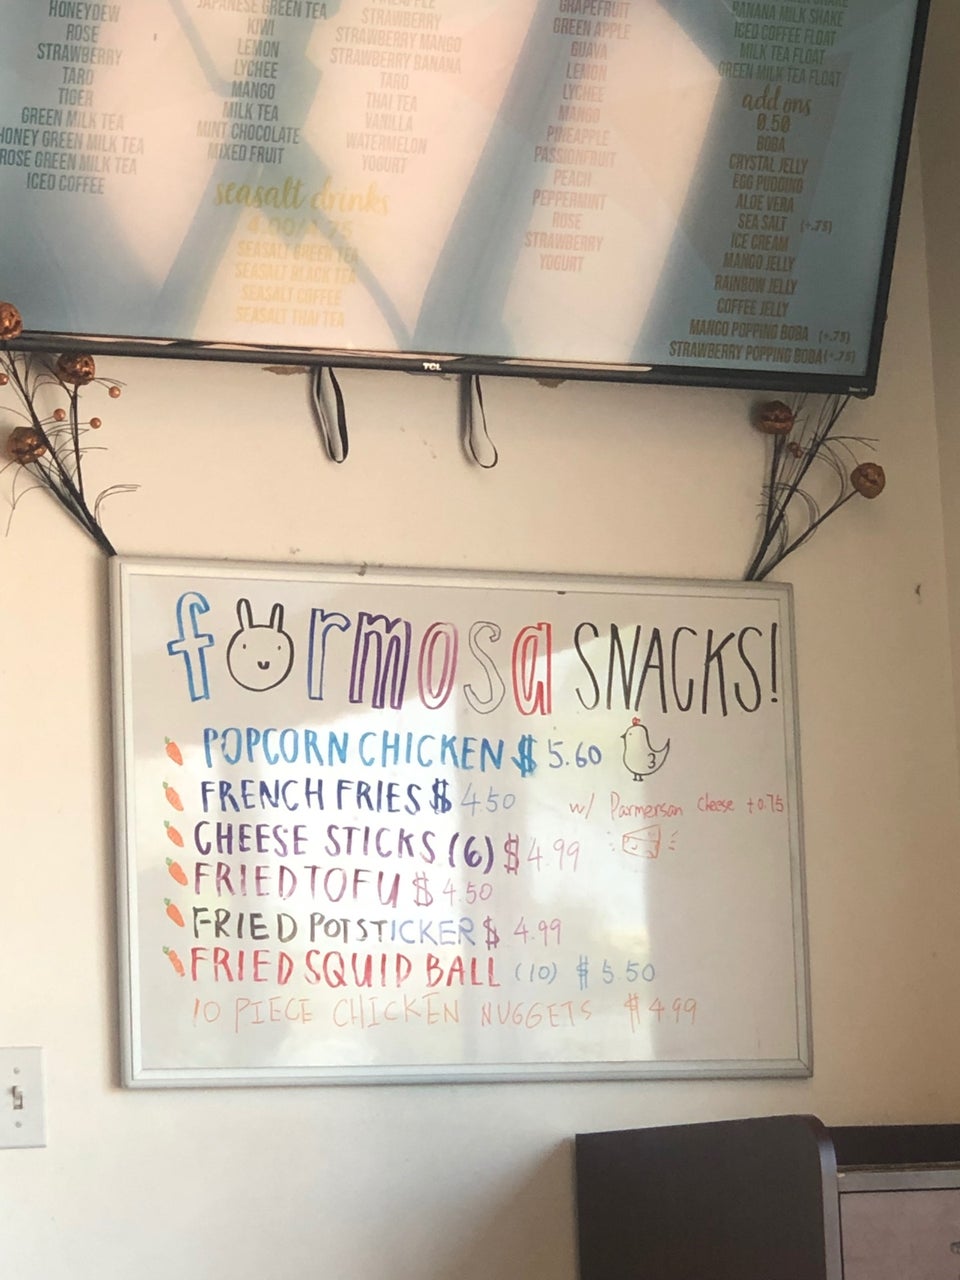 HONEYDEW
ROSE
STRAWBERRY
TARO
TIGER
GREEN MILK TEA
HONEY GREEN MILK TEA
ROSE GREEN MILK TEA
ICED COFFEE
JAPANESE GREEN TEA
KIWI
LEMON
LYCHEE
MANGO
MILK TEA
MINT CHOCOLATE
MIXED FRUIT
seasalt drinks
SEASALT GREEN TEA
SEASALT BLACK TEA
SEASALT COFFEE
SEASALT THAI TEA
STRAWBERRY
STRAWBERRY MANGO
STRAWBERRY BANANA
TARO
THAI TEA
VANILLA
WATERMELON
YOGURT
GRAPEFRUIT
GREEN APPLE
GUAVA
LEMON
LYCHEE
MANGO
PINEAPPLE
PASSIONFRUIT
PEACH
PEPPERMINT
ROSE
STRAWBERRY
YOGURT
BANANA MILK SHAKE
ICED COFFEE FLOAT
MILK TEA FLOAT
GREEN MILK TEA FLOAT
add ons
0.50
BOBA
CRYSTAL JELLY
EGG PUDDING
ALOE VERA
SEA SALT (+.75)
ICE CREAM
MANGO JELLY
RAINBOW JELLY
COFFEE JELLY
MANGO POPPING BOBA (+.75)
STRAWBERRY POPPING BOBA (+.75)
TCL
formosa SNACKS!
POPCORN CHICKEN $ 5.60
3
FRENCH FRIES $ 4.50 w/ Parmersan cheese +0.75
CHEESE STICKS (6) $ 4.99
FRIED TOFU $ 4.50
FRIED POTSTICKER $ 4.99
FRIED SQUID BALL (10) $ 5.50
10 PIECE CHICKEN NUGGETS $ 4.99